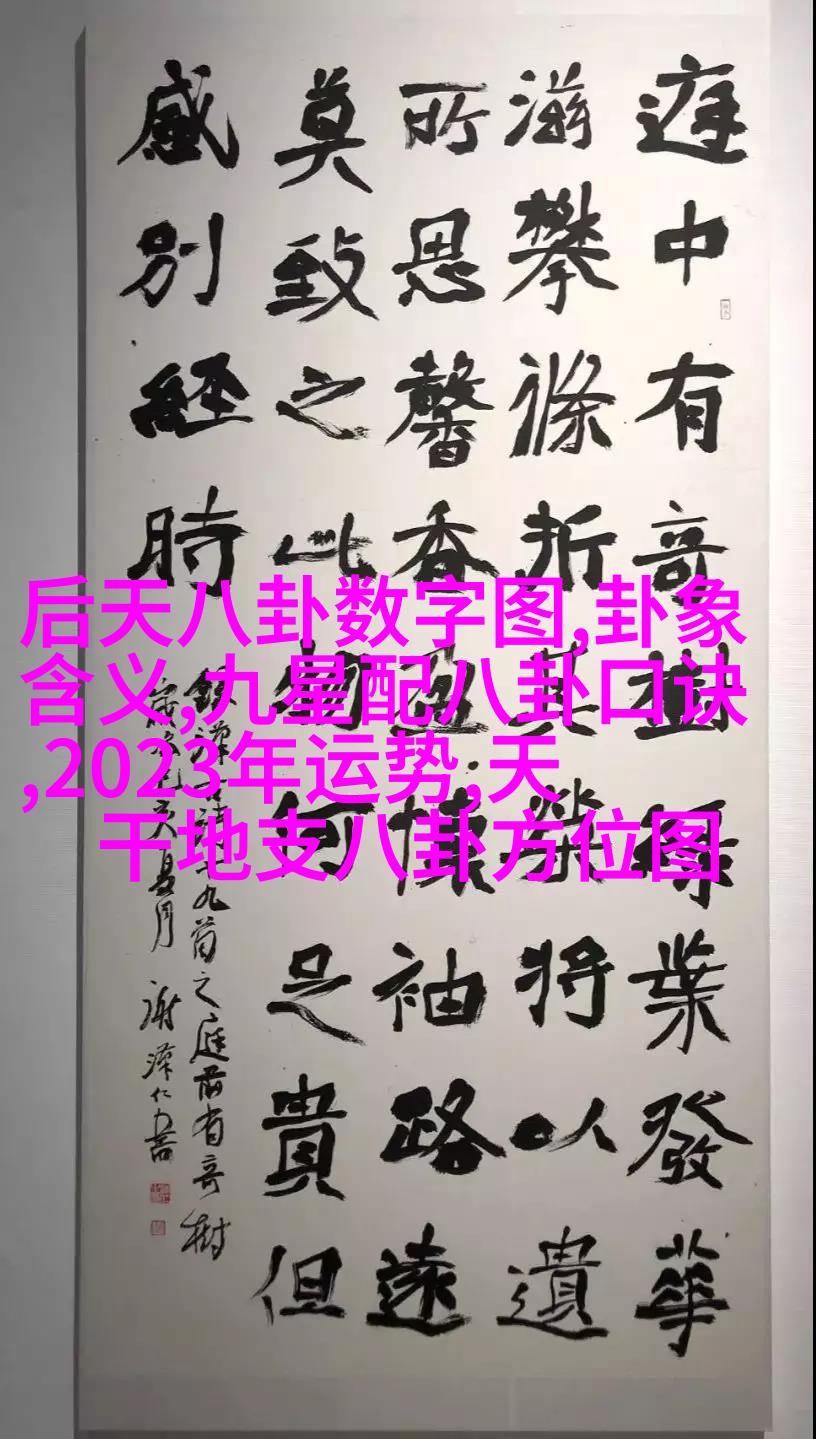 庭中有奇樹綠葉發華
滋攀條折其榮將以遺
所思馨香盈懷袖路遠
莫致之此物何足貴但
感別經時
錄漢古詩十九首之庭前有奇樹
夏月 謝澤仁書
后天八卦数字图,卦象
含义,九星配八卦口诀
,2023年运势,天
干地支八卦方位图